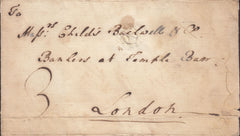 To
Messrs. Childs Backwell & Co.
Bankers at Temple Barr
3
London